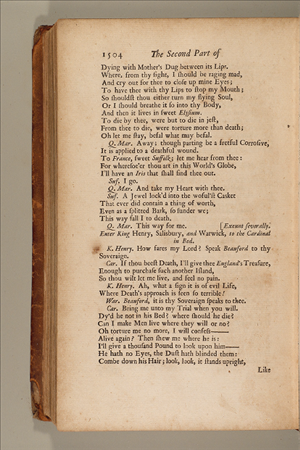 1504 The Second Part of
Dying with Mother's Dug between its Lips.
Where, from thy sight, I should be raging mad,
And cry out for thee to close up mine Eyes;
To have thee with thy Lips to stop my Mouth;
So shouldst thou either turn my flying Soul,
Or I should breathe it so into thy Body,
And then it lives in sweet Elysium.
To die by thee, were but to die in jest,
From thee to die, were torture more than death;
Oh let me stay, befal what may befal.
Q. Mar. Away: though parting be a fretful Corrosive,
It is applied to a deathful wound.
To France, sweet Suffolk; let me hear from thee:
For wheresoe'er thou art in this World's Globe,
I'll have an Iris that shall find thee out.
Suf. I go.
Q. Mar. And take my Heart with thee.
Suf. A Jewel lock'd into the woful'st Casket
That ever did contain a thing of worth,
Even as a splitted Bark, so sunder we;
This way fall I to death.
Q. Mar. This way for me. [Exeunt severally.
Enter King Henry, Salisbury, and Warwick, to the Cardinal
in Bed.
K. Henry. How fares my Lord? Speak Beauford to thy
Soveraign.
Car. If thou beest Death, I'll give thee England's Treasure,
Enough to purchase such another Island,
So thou wilt let me live, and feel no pain.
K. Henry. Ah, what a sign it is of evil Life,
Where Death's approach is seen so terrible?
War. Beauford, it is thy Soveraign speaks to thee.
Car. Bring me unto my Trial when you will.
Dy'd he not in his Bed? where should he die?
Can I make Men live where they will or no?
Oh torture me no more, I will confess——
Alive again? Then shew me where he is:
I'll give a thousand Pound to look upon him——
He hath no Eyes, the Dust hath blinded them:
Combe down his Hair; look, look, it stands upright,
Like